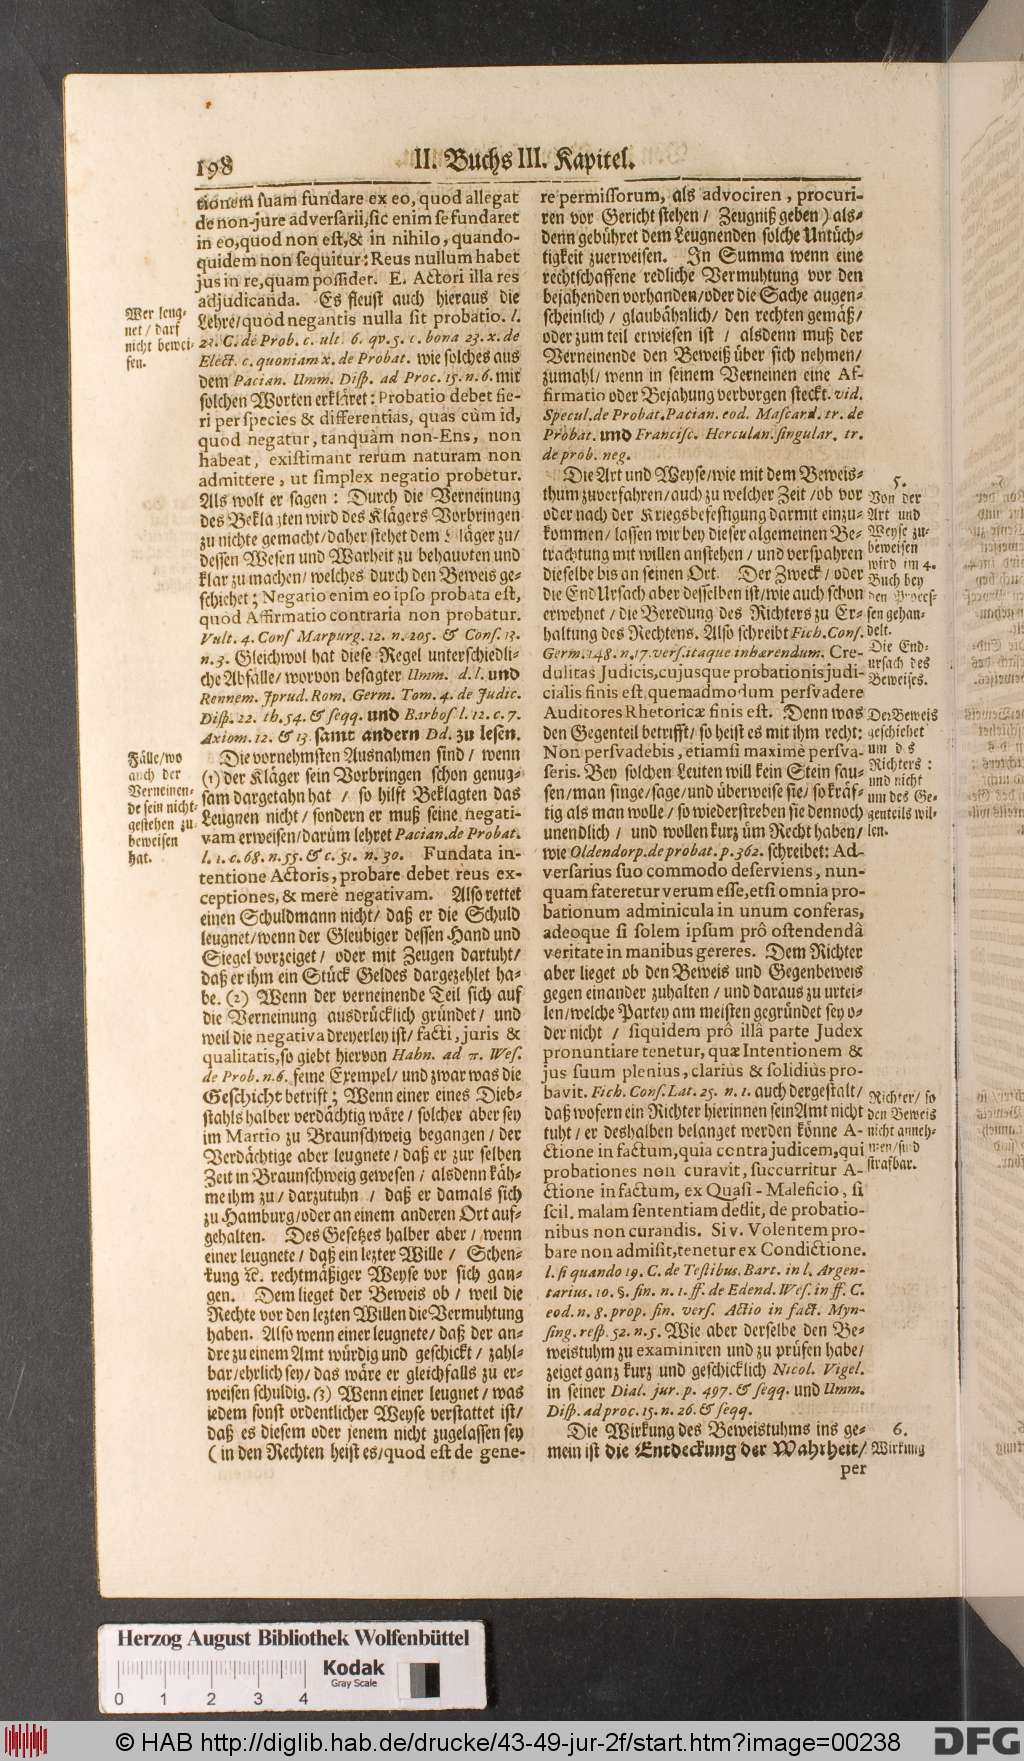 198
II. Buchs III. Kapitel.
tionem suam fundare ex eo, quod allegat
de non-jure adversarii, sic enim se fundaret
in eo, quod non est, & in nihilo, quando-
quidem non sequitur: Reus nullum habet
jus in re, quam possidet. E. Actori illa res
adjudicanda. Es fleust auch hieraus die
Lehre/ quòd negantis nulla sit probatio. l.
23. C. de Prob. c. ult. 6. qv. 5. c. bona 23. x. de
Elect. c. quoniam x. de Probat. wie solches aus
dem Pacian. Umm. Disp. ad Proc. 15. n. 6. mit
solchen Worten erkläret: Probatio debet fie-
ri per species & differentias, quas cùm id,
quod negatur, tanquàm non-Ens, non
habeat, existimant rerum naturam non
admittere, ut simplex negatio probetur.
Als wolt er sagen: Durch die Verneinung
des Beklagten wird des Klägers Vorbringen
zu nichte gemacht/ daher stehet dem Kläger zu/
dessen Wesen und Warheit zu behaupten und
klar zu machen/ welches durch den Beweis ge-
schiehet; Negatio enim eo ipso probata est,
quod Affirmatio contraria non probatur.
Vult. 4. Cons Marpurg. 12. n. 205. & Cons. 13.
n. 3. Gleichwol hat diese Regel unterschiedli-
che Abfälle/ worvon besagter Umm. d. l. und
Rennem. Jprud. Rom. Germ. Tom. 4. de Judic.
Disp. 22. th. 54. & seqq. und Barbos l. 12. c. 7.
Axiom. 12. & 13. samt andern Dd. zu lesen.
Die vornehmsten Ausnahmen sind/ wenn
(1) der Kläger sein Vorbringen schon genug-
sam dargetahn hat / so hilft Beklagten das
Leugnen nicht/ sondern er muß seine negati-
vam erweisen/ darüm lehret Pacian. de Probat.
l. 1. c. 68. n. 55. & c. 51. n. 30. Fundata in-
tentione Actoris, probare debet reus ex-
ceptiones, & merè negativam. Also rettet
einen Schuldmann nicht/ daß er die Schuld
leugnet/ wenn der Gleubiger dessen Hand und
Siegel vorzeiget/ oder mit Zeugen dartuht/
daß er ihm ein Stück Geldes dargezehlet ha-
be. (2) Wenn der verneinende Teil sich auf
die Verneinung ausdrücklich gründet/ und
weil die negativa dreyerley ist/ facti, juris &
qualitatis, so giebt hiervon Hahn. ad π. Wes.
de Prob. n. 6. seine Exempel/ und zwar was die
Geschicht betrift; Wenn einer eines Dieb-
stahls halber verdächtig wäre/ solcher aber sey
im Martio zu Braunschweig begangen/ der
Verdächtige aber leugnete/ daß er zur selben
Zeit in Braunschweig gewesen; alsdenn käh-
me ihm zu/ darzutuhn / daß er damals sich
zu Hamburg/ oder an einem anderen Ort auf-
gehalten. Des Gesetzes halber aber/ wenn
einer leugnete/ daß ein lezter Wille/ Schen-
kung ꝛc. rechtmäßiger Weyse vor sich gan-
gen. Dem lieget der Beweis ob/ weil die
Rechte vor den lezten Willen die Vermuhtung
haben. Also wenn einer leugnete/ daß der an-
dre zu einem Amt würdig und geschickt/ zahl-
bar/ ehrlich sey/ das wäre er gleichfalls zu er-
weisen schuldig. (3) Wenn einer leugnet/ was
iedem sonst ordentlicher Weyse verstattet ist/
daß es diesem oder jenem nicht zugelassen sey
(in den Rechten heist es/ quod est de gene-
Wer leug-
net/ darf
nicht bewei-
sen.
Fälle/ wo
auch der
Verneinen-
de sein nicht-
gestehen zu
beweisen
hat.
re permissorum, als advociren, procuri-
ren vor Gericht stehen/ Zeugniß geben) als-
denn gebühret dem Leugnenden solche Untüch-
tigkeit zuerweisen. In Summa wenn eine
rechtschaffene redliche Vermuhtung vor den
bejahenden vorhanden/ oder die Sache augen-
scheinlich/ glaubähnlich/ den rechten gemäß/
oder zum teil erwiesen ist / alsdenn muß der
Verneinende den Beweiß über sich nehmen/
zumahl/ wenn in seinem Verneinen eine Af-
firmatio oder Bejahung verborgen steckt. vid.
Specul. de Probat. Pacian. eod. Mascard. tr. de
Probat. und Francisc. Herculan. singular. tr.
de prob. neg.
Die Art und Weyse/ wie mit dem Beweis-
thum zuverfahren/ auch zu welcher Zeit/ ob vor
oder nach der Kriegsbefestigung darmit einzu-
kommen/ lassen wir bey dieser algemeinen Be-
trachtung mit willen anstehen/ und verspahren
dieselbe bis an seinen Ort. Der Zweck/ oder
die End Ursach aber desselben ist/ wie auch schon
erwehnet/ die Beredung des Richters zu Er-
haltung des Rechtens. Also schreibt Fich. Cons.
Germ. 148. n. 17. vers. itaque inhærendum. Cre-
dulitas Judicis, cujusque probationis judi-
cialis finis est, quemadmodum persvadere
Auditores Rhetoricæ finis est. Denn was
den Gegenteil betrifft/ so heist es mit ihm recht:
Non persvadebis, etiamsi maximè persva-
seris. Bey solchen Leuten will kein Stein sau-
sen/ man singe/ sage/ und überweise sie/ so kräf-
tig als man wolle/ so wiederstreben sie dennoch
unendlich/ und wollen kurz üm Recht haben/
wie Oldendorp. de probat. p. 362. schreibet: Ad-
versarius suo commodo deserviens, nun-
quam fateretur verum esse, etsi omnia pro-
bationum adminicula in unum conferas,
adeoque si solem ipsum prô ostendendâ
veritate in manibus gereres. Dem Richter
aber lieget ob den Beweis und Gegenbeweis
gegen einander zuhalten/ und daraus zu urtei-
len/ welche Partey am meisten gegründet sey o-
der nicht / siquidem prô illâ parte Judex
pronuntiare tenetur, quæ Intentionem &
jus suum plenius, clarius & solidius pro-
bavit. Fich. Cons. Lat. 25. n. 1. auch dergestalt/
daß wofern ein Richter hierinnen sein Amt nicht
tuht/ er deshalben belanget werden könne A-
ctione in factum, quia contra judicem, qui
probationes non curavit, succurritur A-
ctione in factum, ex Quasi-Maleficio, si
scil. malam sententiam dedit, de probatio-
nibus non curandis. Si v. Volentem pro-
bare non admisit, tenetur ex Condictione.
l. si quando 19. C. de Testibus. Bart. in l. Argen-
tarius. 10. §. fin. n. 1. ff. de Edend. Wes. in ff. C.
eod. n. 8. prop. fin. vers. Actio in fact. Myn-
sing. resp. 52. n. 5. Wie aber derselbe den Be-
weistuhm zu examiniren und zu prüfen habe/
zeiget ganz kurz und geschicklich Nicol. Vigel.
in seiner Dial. jur. p. 497. & seqq. und Umm.
Disp. ad proc. 15. n. 26. & seqq.
Die Wirkung des Beweistuhms ins ge-
mein ist die Entdeckung der Wahrheit/
per
5.
Von der
Art und
Weyse zu-
beweisen
wird im 4.
Buch bey
den Process-
sen gehan-
delt.
Die End-
ursach des
Beweises.
Der Beweis
geschiehet
um des
Richters:
und nicht
um des Ge-
genteils wil-
len.
Richter/ so
den Beweis
nicht anneh-
men/ sind
strafbar.
6.
Wirkung
Herzog August Bibliothek Wolfenbüttel
Kodak
Gray Scale
0 1 2 3 4
© HAB http://diglib.hab.de/drucke/43-49-jur-2f/start.htm?image=00238
DFG